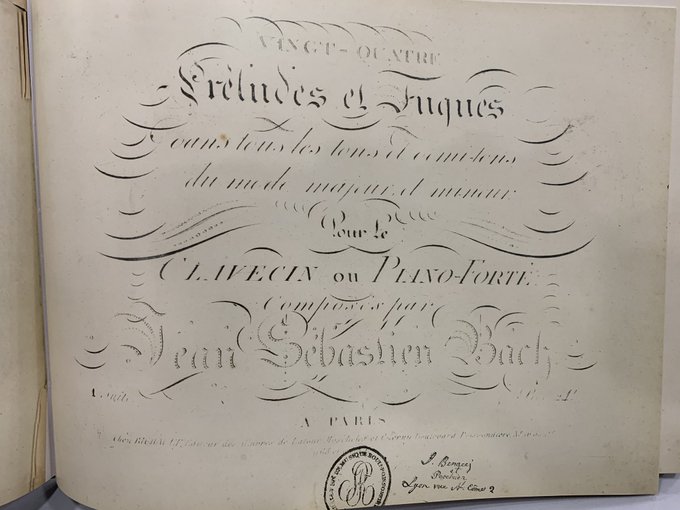 VINGT-QUATRE
Préludes et Fugues
dans tous les tons et demi-tons
du mode majeur et mineur
Pour le
CLAVECIN ou PIANO-FORTÉ
Composés par
Jean Sébastien Bach
A PARIS
Chez RICHAULT, Editeur des Œuvres de Boulevard Poissonnière
Lyon rue